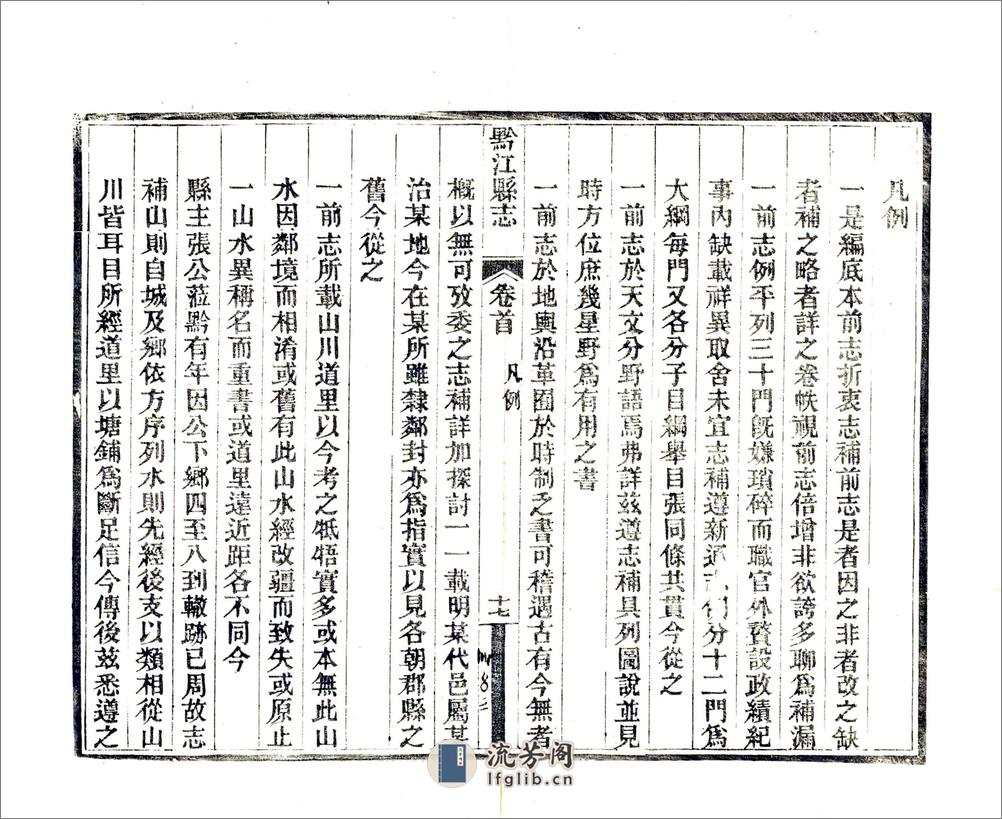 凡例
一是編底本前志折衷志補前志是者因之非者改之缺
者補之略者詳之卷帙視前志倍增非欲誇多聊爲補漏
一前志例平列三十門旣嫌瑣碎而職官外贅設政績紀
事內缺載祥異取舍未宜志補遵新通分十二門爲
大綱每門又各分子目綱舉目張同條共貫今從之
一前志於天文分野語焉弗詳茲遵志補具列圖說並見
時方位庶幾星野爲有用之書
一前志於地輿沿革囿於時制乏書可稽遇古有今無者
黔江縣志
卷首
凡例
十七
概以無可攷委之志補詳加探討一一載明某代邑屬某
治某地今在某所雖隸鄰封亦爲指實以見各朝郡縣之
舊今從之
一前志所載山川道里以今考之牴牾實多或本無此山
水因鄰境而相淆或舊有此山水經改疆而致失或原止
一山水異稱名而重書或道里遠近距各不同今
縣主張公蒞黔有年因公下鄉四至八到轍跡已周故志
補山則自城及鄉依方序列水則先經後支以類相從山
川皆耳目所經道里以塘鋪爲斷足信今傳後茲悉遵之
流芳阁
lfglib.cn